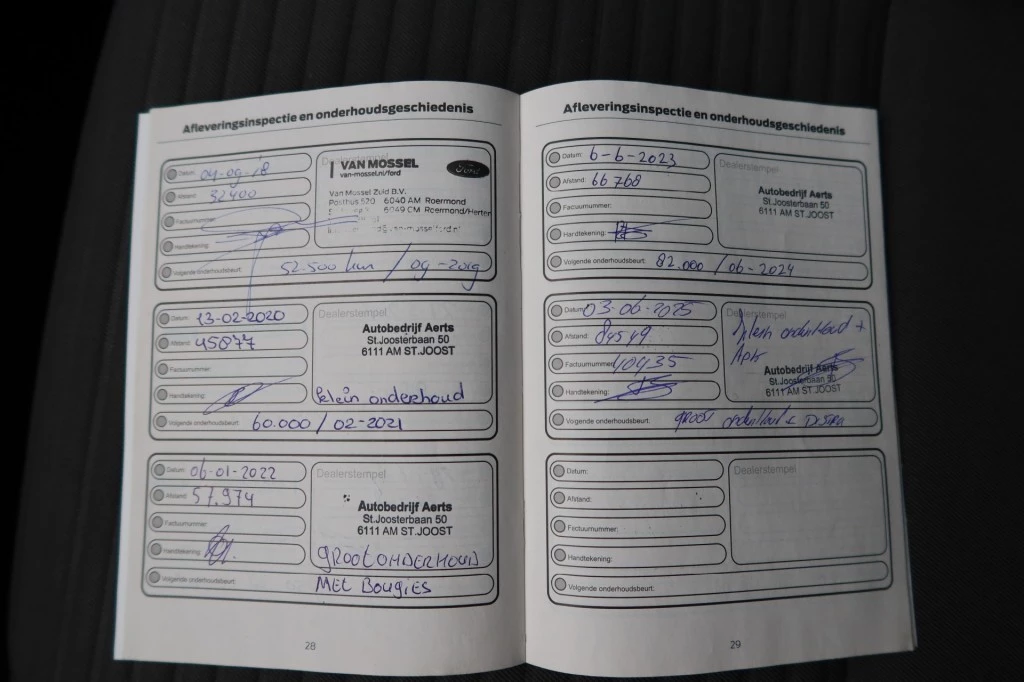 Afleveringsinspectie en onderhoudsgeschiedenis
Datum: 04-09-18
Afstand: 32400
Factuurnummer:
Handtekening:
Dealerstempel
VAN MOSSEL
van-mossel.nl/ford
Ford
Van Mossel Zuid B.V.
Postbus 520 6040 AM Roermond
6049 CM Roermond/Herten
Volgende onderhoudsbeurt: 52.500 km / 09-2019
Datum: 13-02-2020
Afstand: 45877
Factuurnummer:
Handtekening:
Dealerstempel
Autobedrijf Aerts
St.Joosterbaan 50
6111 AM ST.JOOST
klein onderhoud
Volgende onderhoudsbeurt: 60.000 / 02-2021
Datum: 06-01-2022
Afstand: 57.974
Factuurnummer:
Handtekening:
Dealerstempel
Autobedrijf Aerts
St.Joosterbaan 50
6111 AM ST.JOOST
GROOT ONDERHOUD
Volgende onderhoudsbeurt: MET BOUGIES
28
Afleveringsinspectie en onderhoudsgeschiedenis
Datum: 6-6-2023
Afstand: 66768
Factuurnummer:
Handtekening:
Dealerstempel
Autobedrijf Aerts
St.Joosterbaan 50
6111 AM ST.JOOST
Volgende onderhoudsbeurt: 82.000 / 06-2024
Datum: 03-06-2025
Afstand: 84549
Factuurnummer: 40435
Handtekening:
Dealerstempel
klein onderhoud +
Apk
Autobedrijf Aerts
St.Joosterbaan 50
6111 AM ST.JOOST
Volgende onderhoudsbeurt: groot onderhoud +
Datum:
Afstand:
Factuurnummer:
Handtekening:
Dealerstempel
Volgende onderhoudsbeurt:
29